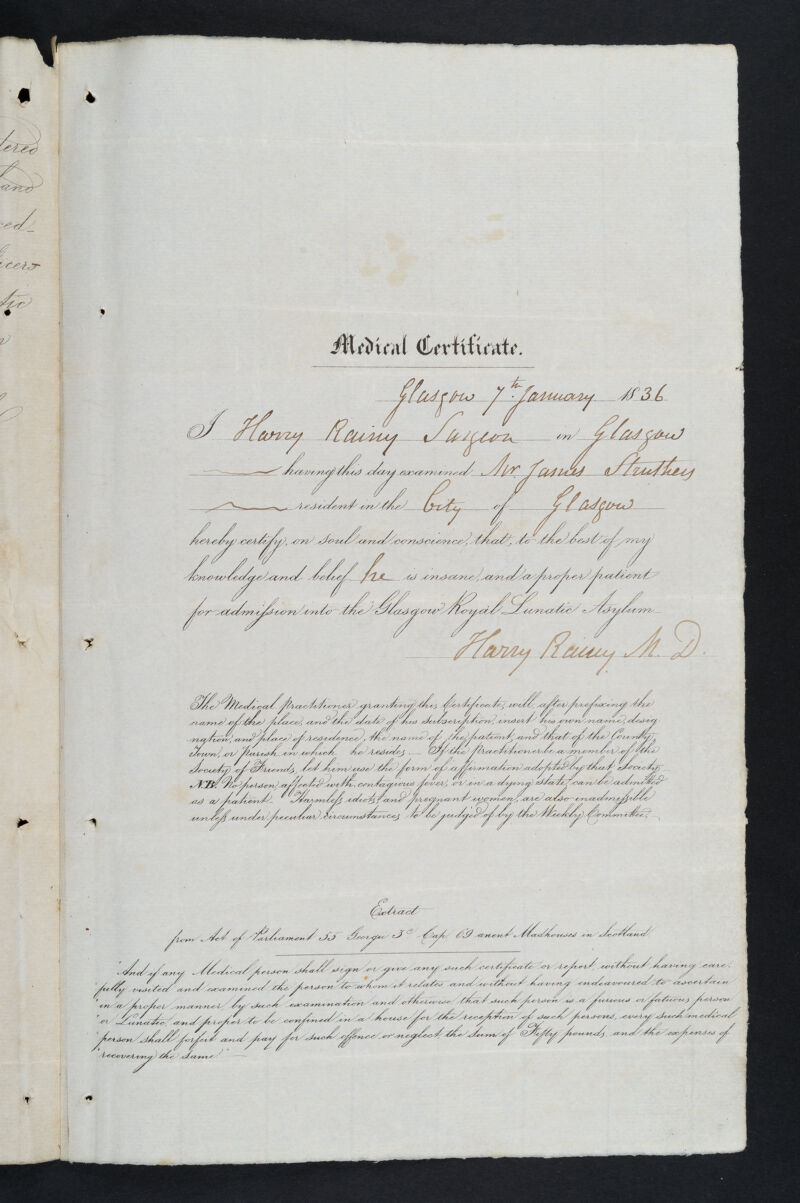 tered
and
ced-
icers
tic
Medical Certificate.
Glasgow 7th. January 1836
I Harry Rainy Surgeon in Glasgow
having this day examined Mr. James Struthers
resident in the City of Glasgow
hereby certify, on soul and conscience, that, to the best of my
knowledge and belief he is insane, and a proper patient
for admission into the Glasgow Royal Lunatic Asylum
Harry Rainy M. D.
The Medical practitioner granting this Certificate, will, after prefixing the
name of the place, and the date of his subscription, insert his own name, desig
nation, and place of residence, the name of the patient, and that of the County,
Town, or parish in which he resides — If the practitioner be a member of the
Society of Friends, let him use the form of affirmation adopted by that Society.
N.B. No person affected with contagious fever, or in a dying state, can be admitted
as a patient. Harmless idiots, and pregnant women, are also inadmissible
unless under peculiar circumstances to be judged of by the Weekly Committee.
Extract
from Act of Parliament 55 George 3d Cap 69 anent Madhouses in Scotland
"And if any Medical person shall sign or give any such certificate or report, without having care-
"fully visited and examined the person to whom it relates and without having endeavoured to ascertain
"in a proper manner, by such examination and otherwise that such person is a furious or fatuous person
"or Lunatic, and proper to be confined in a house for the reception of such persons, every such medical
"person shall forfeit and pay for such offence or neglect, the sum of Fifty pounds, and the expenses of
"recovering the same"